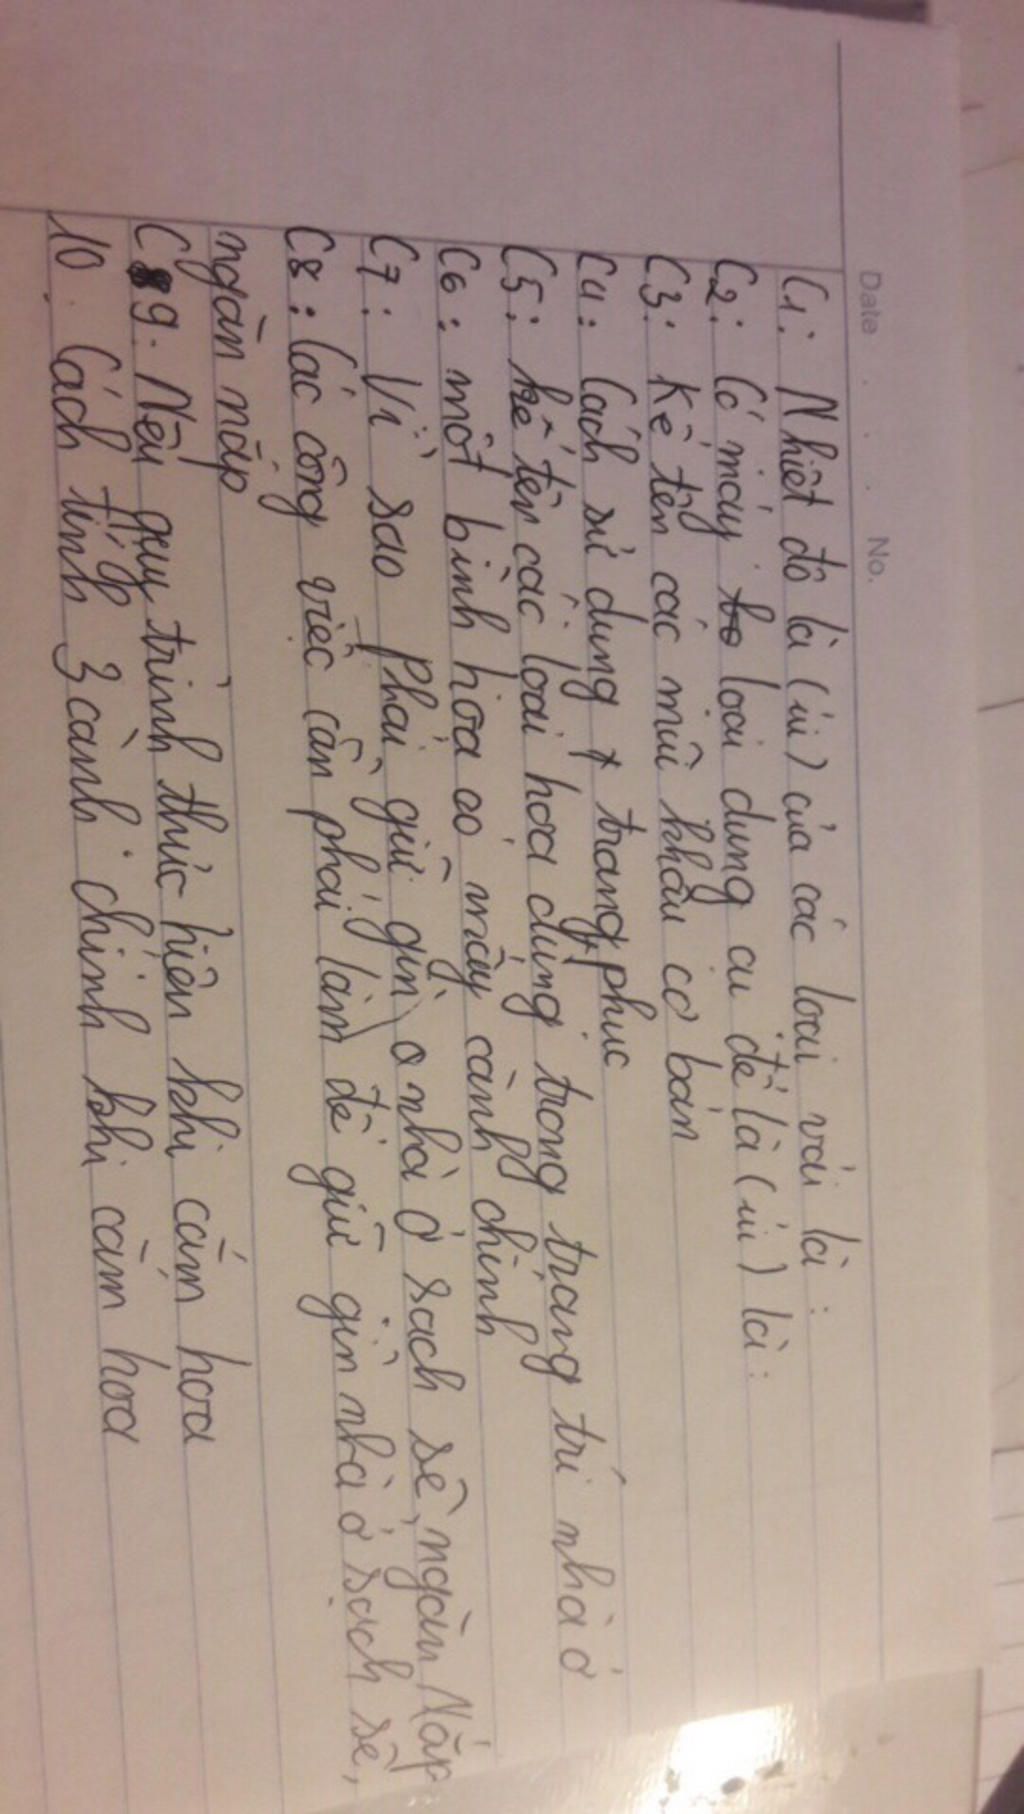 Date . . . . No.
C1: Nhiệt độ là (ủi) của các loại vải là:
C2: Có mấy loại dụng cụ để là (ủi) là:
C3: Kể tên các mũi khâu cơ bản
C4: Cách sử dụng trang phục
C5: kể tên các loại hoa dụng trong trang trí nhà ở
C6: một bình hoa có mấy cành chính
C7: Vì sao phải giữ gìn nhà ở sạch sẽ, ngăn Nắp
C8: Các công việc cần phải làm để giữ gìn nhà ở sạch sẽ,
ngăn nắp
C9: Nêu quy trình thực hiện khi cắm hoa
10. Cách tính 3 cành chính khi cắm hoa